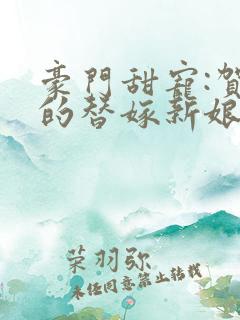 豪門甜寵:賀
的替嫁新娘
荣羽弥
未经同意禁止转载